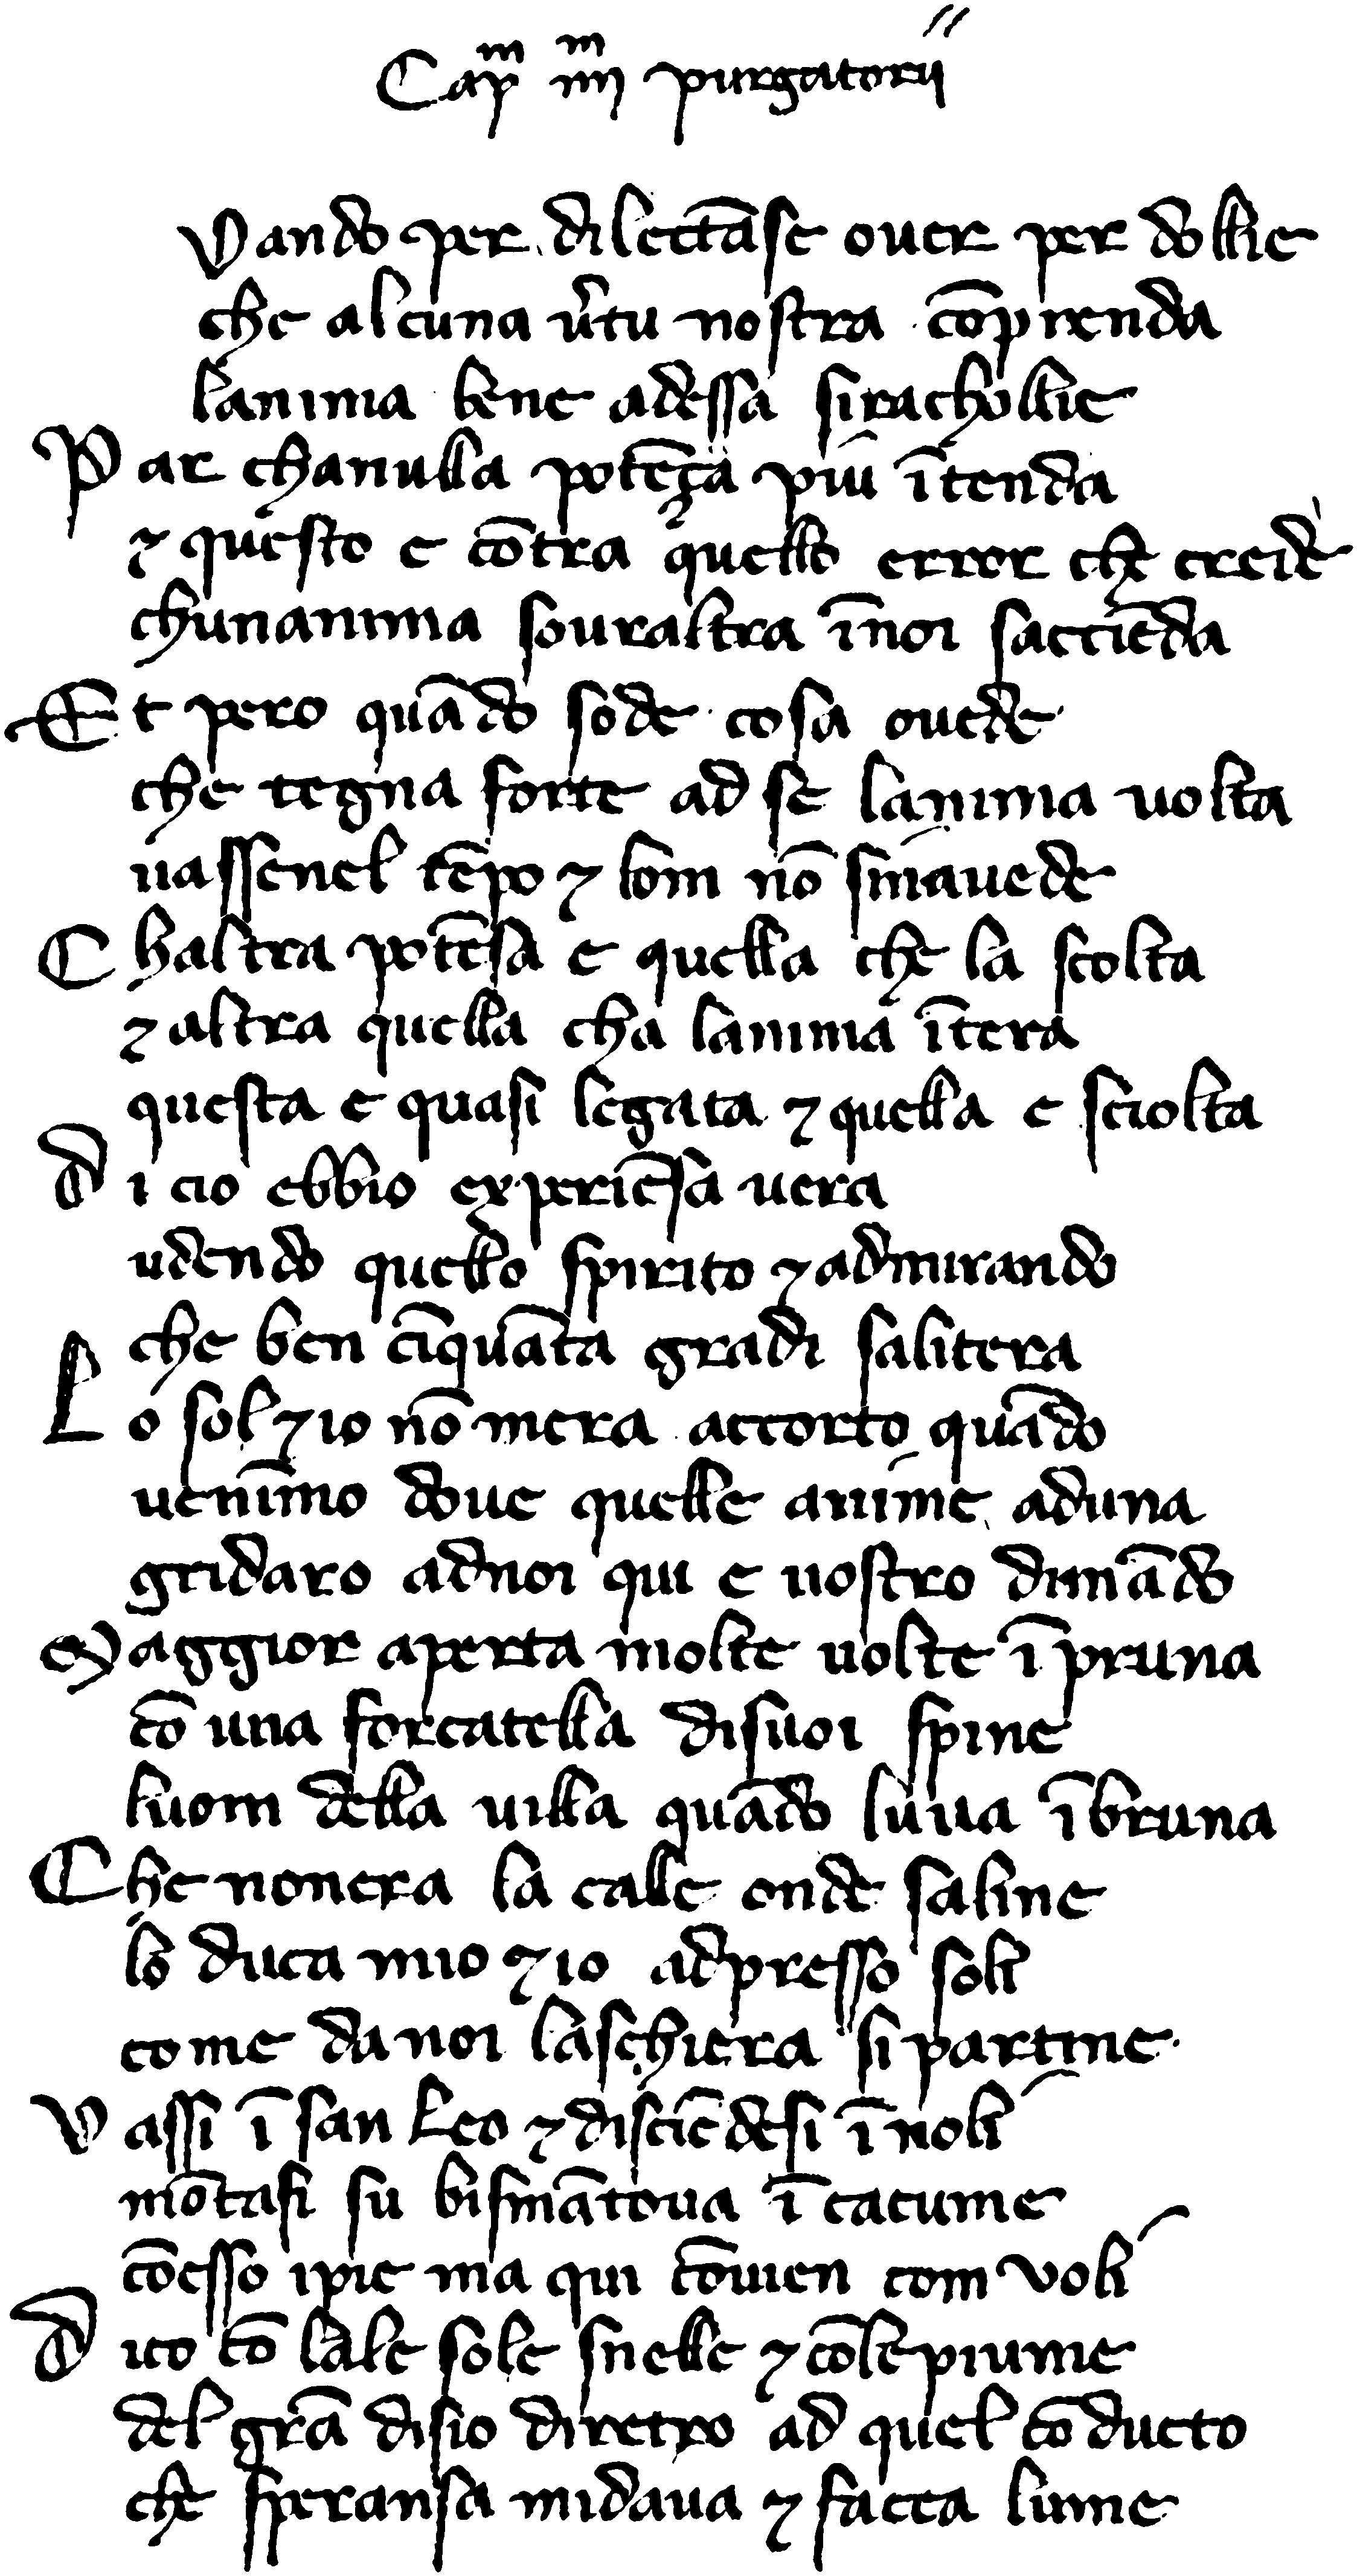 Cap̄ iiij purgatorii
Vando per dilectāse ouer per dollie
che alcuna v̄tu nostra cōprenda
lanima bene adessa sirachollie
Par chanulla potēça piu ītenda
⁊ questo e cōtra quello error che creide
chunanima souraltra īnoi sacciēda
Et pero quādo sode cosa ouede
che tegna forte ad se lanima uolta
uassenel tēpo ⁊ lom nō smauede
Chaltra potēsa e quella che la scolta
⁊ altra quella cha lanima ītera
questa e quasi legata ⁊ quella e sciolta
di cio ebbio experiēsa uera
udendo quello spirito ⁊ admirando
che ben cīquāta gradi salitera
Lo sol ⁊ io nō mera accorto quādo
uenīmo doue quelle anime aduna
gridaro adnoi qui e uostro dimādo
Maggior aperta molte uolte īpruna
cō una forcatella disuoi spine
luom della uilla quādo luua ībruna
Che nonera la calle onde saline
lo duca mio ⁊ io adpresso soli
come da noi laschiera si partine
Vassi ī san Leo ⁊ disciēdesi ī noli
mōtasi su bismātoua ī cacume
cōesso ipie ma qui cōuien com voli
dico cō lale sole snelle ⁊ cōle piume
del grā disio diretro ad quel cōducto
che speransa midaua ⁊ facea lume